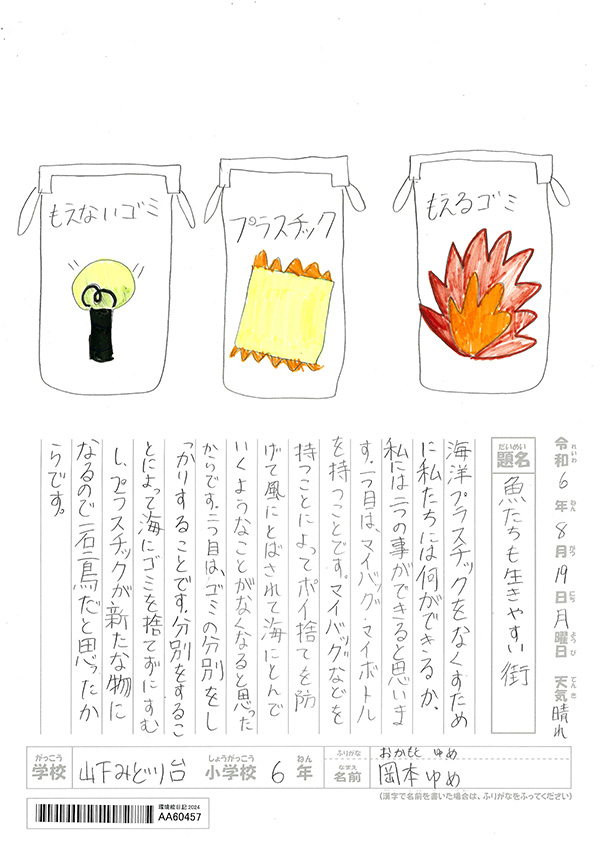 もえないゴミ
プラスチック
もえるゴミ
令和6年8月19日月曜日 天気 晴れ
れいわ ねん がつ にち ようび てんき
だいめい
題名 魚たちも生きやすい街
海洋プラスチックをなくすため
に私たちには何ができるか、
私には二つの事ができると思いま
す。一つ目は、マイバッグ・マイボトル
を持つことです。マイバッグなどを
持つことによってポイ捨てを防
げて風にとばされて海にとんで
いくようなことがなくなると思った
からです。二つ目は、ゴミの分別をし
っかりすることです。分別をするこ
とによって海にゴミを捨てずにすむ
し、プラスチックが新たな物に
なるので一石二鳥だと思ったか
らです。
がっこう しょうがっこう ねん
学校 山下みどり台 小学校 6年
ふりがな おかもと ゆめ
なまえ
名前 岡本ゆめ
(漢字で名前を書いた場合は、ふりがなをふってください)
環境絵日記2024
AA60457